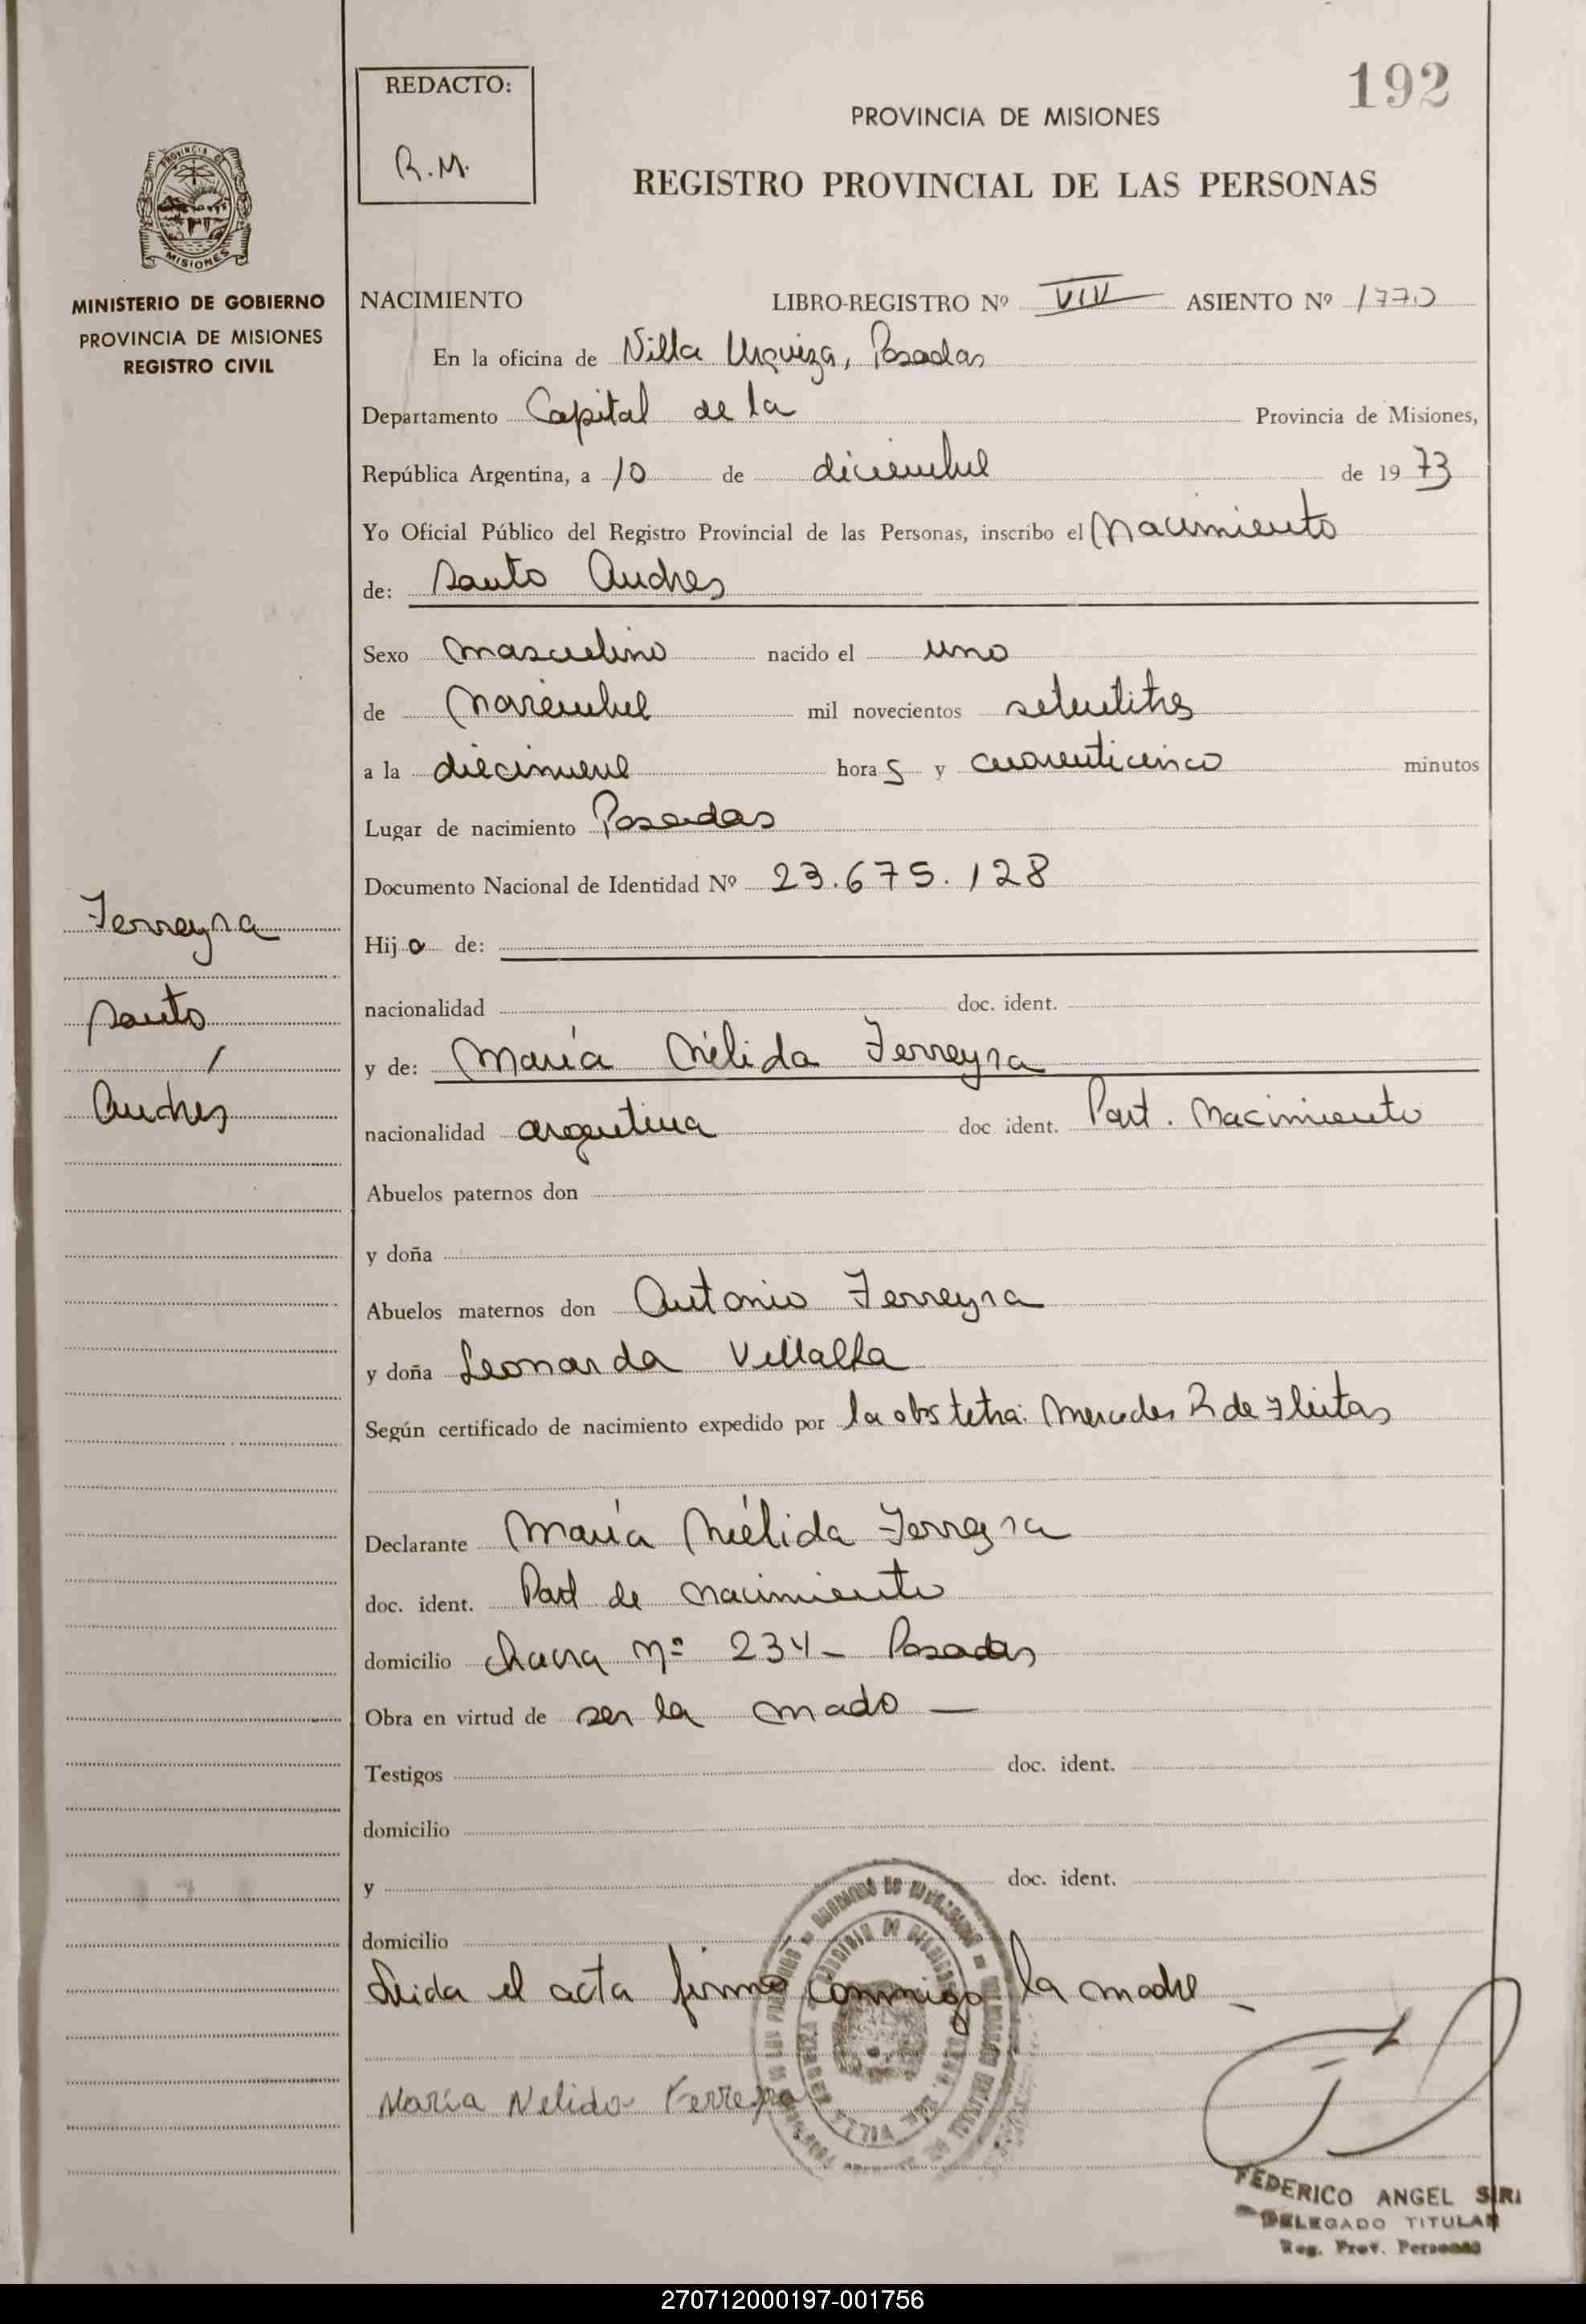 192
REDACTO:
R.M.
PROVINCIA DE MISIONES
REGISTRO PROVINCIAL DE LAS PERSONAS
PROVINCIA DE
MISIONES
MINISTERIO DE GOBIERNO
PROVINCIA DE MISIONES
REGISTRO CIVIL
NACIMIENTO LIBRO-REGISTRO Nº VIII ASIENTO Nº 1770
En la oficina de Villa Urquiza, Posadas
Departamento Capital de la Provincia de Misiones,
República Argentina, a 10 de diciembre de 1973
Yo Oficial Público del Registro Provincial de las Personas, inscribo el Nacimiento
de: Santo Andres
Sexo masculino nacido el uno
de Noviembre mil novecientos setentitres
a la diecinueve horas y cuarenticinco minutos
Lugar de nacimiento Posadas
Documento Nacional de Identidad Nº 23.675.128
Ferreyra
Santo
Andres
Hijo de:
nacionalidad doc. ident.
y de: María Nélida Ferreyra
nacionalidad argentina doc ident. Part. Nacimiento
Abuelos paternos don
y doña
Abuelos maternos don Antonio Ferreyra
y doña Leonarda Villalba
Según certificado de nacimiento expedido por la obstetra: Mercedes R de Fleitas
Declarante María Nélida Ferreyra
doc. ident. Part de Nacimiento
domicilio Chacra Nº 234 - Posadas
Obra en virtud de ser la madre —
Testigos doc. ident.
domicilio
y doc. ident.
domicilio
Leida el acta firmó conmigo la madre -
María Nelida Ferreyra
FEDERICO ANGEL SIRI
DELEGADO TITULAR
Reg. Prov. Personas
270712000197-001756